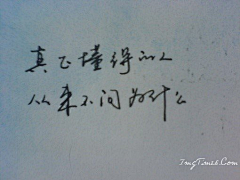 真正懂得的人
从来不问为什么
TingTimes.Com